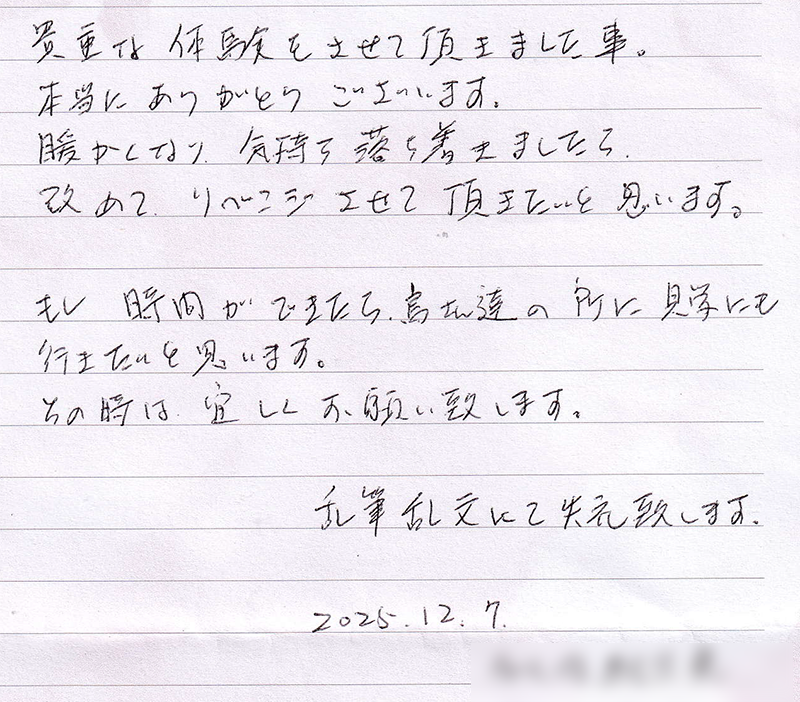 貴重な体験をさせて頂きました事。
本当にありがとうございます。
暖かくなり、気持ち落ち着きましたら、
改めて、リベンジさせて頂きたいと思います。
もし時間ができたら、鳥さん達の所に見学にも
行きたいと思います。
その時は、宜しくお願い致します。
乱筆乱文にて失礼致します。
2025.12.7.